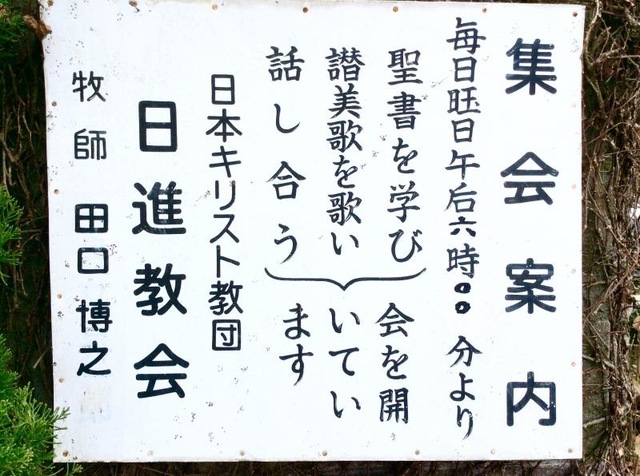 集会案内
毎日旺日午后六時〇〇分より
聖書を学び
讃美歌を歌い
話し合う
会を開
いてい
ます
日本キリスト教団
日進教会
牧師 田口博之